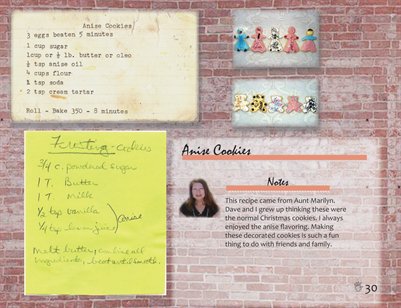 Anise Cookies
3 eggs beaten 5 minutes
1 cup sugar
1cup or ½ lb. butter or oleo
½ tsp anise oil
4 cups flour
½ tsp soda
2 tsp cream tartar
Roll - Bake 350 - 8 minutes
Frosting - cookies
3/4 c. powdered sugar
1 T. Butter
1 T. Milk
1/2 tsp vanilla
1/4 tsp lemon juice
) anise
Melt butter, combine all
ingredients, beat until smooth.
Anise Cookies
Notes
This recipe came from Aunt Marilyn.
Dave and I grew up thinking these were
the normal Christmas cookies. I always
enjoyed the anise flavoring. Making
these decorated cookies is such a fun
thing to do with friends and family.
30